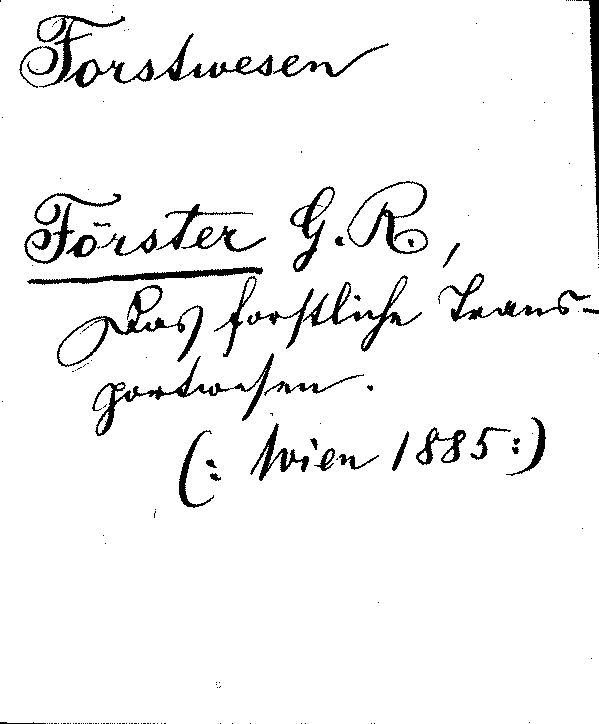 Forstwesen
Förster G. R.,
Das forstliche Trans-
portwesen.
(: Wien 1885 :)